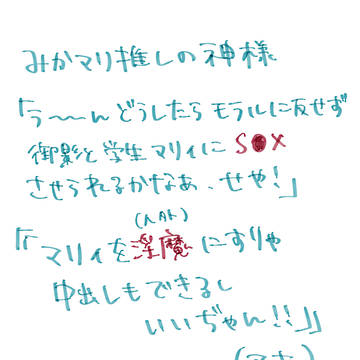 みかマリ推しの神様
「う〜〜んどうしたらモラルに反せず
御影と学生マリィにS●X
させられるかなあ、せや!」
「「マリィを淫魔にすりゃ
中出しもできるし
いいぢゃん!!」」